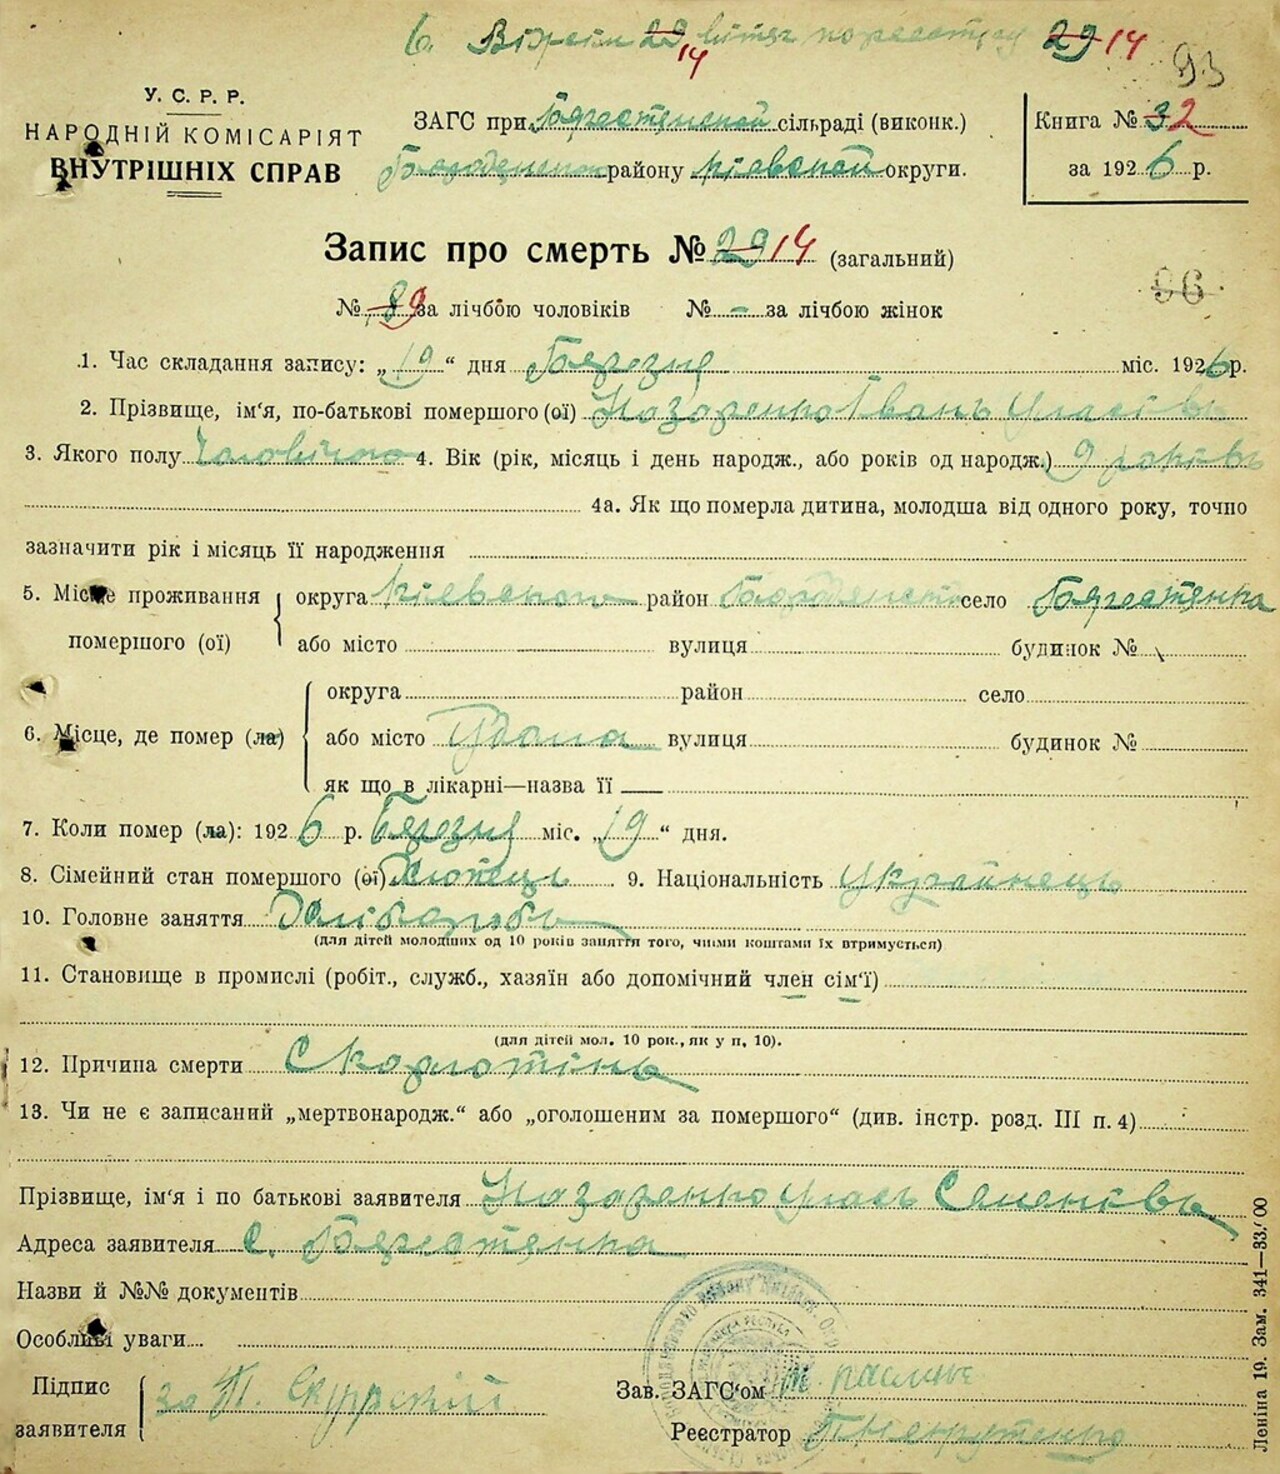 6. 29 14 29 14 93
У. С. Р. Р.
НАРОДНІЙ КОМІСАРІЯТ
ВНУТРІШНІХ СПРАВ
ЗАГС при Берестенской сільраді (виконк.)
району Київской округи.
Книга № 32
за 1926 р.
Запис про смерть № 29 14 (загальний)
96
№ 8 9 за лічбою чоловіків № - за лічбою жінок
1. Час складання запису: „19“ дня Березня міс. 1926 р.
2. Прізвище, ім'я, по-батькові помершого (ої) Назаренко Івань
3. Якого полу 4. Вік (рік, місяць і день народж., або років од народж.) 9 років
4а. Як що померла дитина, молодша від одного року, точно
зазначити рік і місяць її народження
5. Місце проживання помершого (ої) округа район село
або місто вулиця будинок №
6. Місце, де помер (ла) округа район село
або місто Удома вулиця будинок №
як що в лікарні—назва її
7. Коли помер (ла): 1926 р. Березня міс. „19“ дня.
8. Сімейний стан помершого (ої) 9. Національність Українець
10. Головне заняття Хлібороб
(для дітей молодших од 10 років заняття того, чиїми коштами їх втримується)
11. Становище в промислі (робіт., служб., хазяїн або допомічний член сім'ї)
(для дітей мол. 10 рок., як у п. 10).
12. Причина смерти Скорлотінь
13. Чи не є записаний „мертвонародж.“ або „оголошеним за помершого“ (див. інстр. розд. III п. 4)
Прізвище, ім'я і по батькові заявителя Назаренко Семенівь
Адреса заявителя с.
Назви й №№ документів
Особливі уваги
Підпис заявителя за
Зав. ЗАГС'ом
Реєстратор
Леніна 19. Зам. 341—33.000